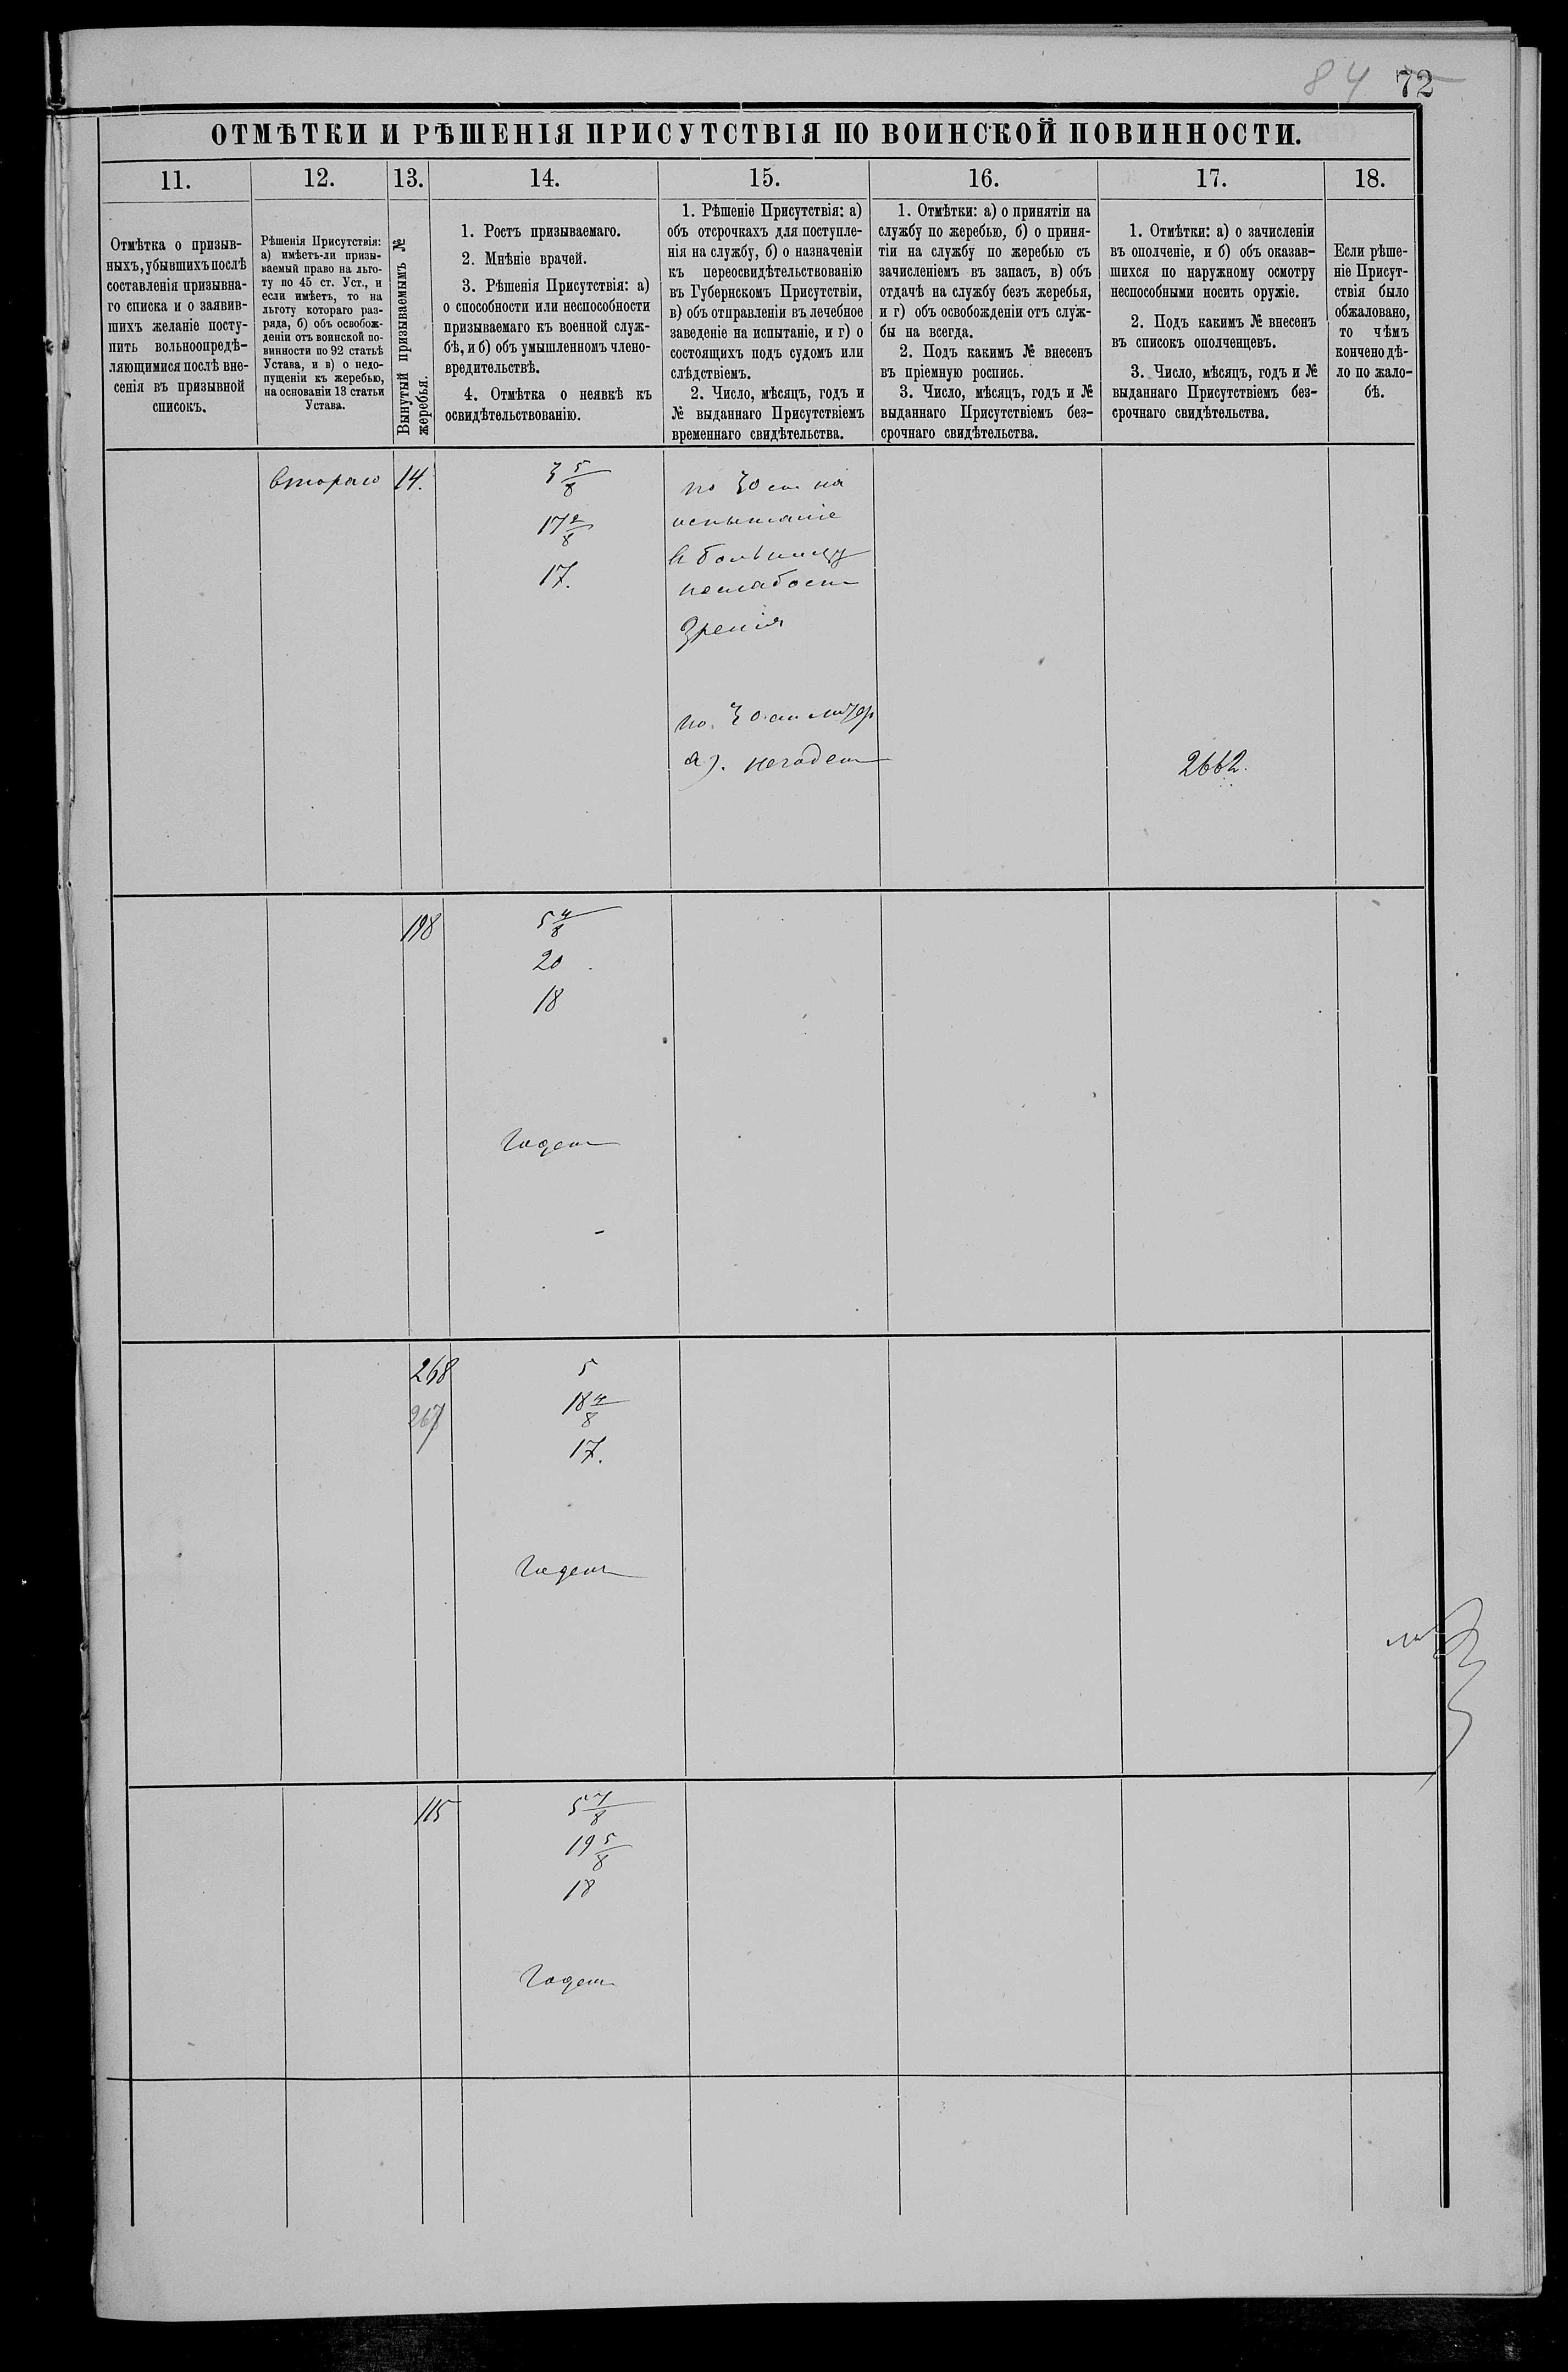 84 72
ОТМѢТКИ И РѢШЕНІЯ ПРИСУТСТВІЯ ПО ВОИНСКОЙ ПОВИННОСТИ.
11.
Отмѣтка о призыв-
ныхъ, убывшихъ послѣ
составленія призывна-
го списка и о заявив-
шихъ желаніе посту-
пить вольноопредѣ-
ляющимися послѣ вне-
сенія въ призывной
списокъ.
12.
Рѣшенія Присутствія:
а) имѣетъ-ли призы-
ваемый право на льго-
ту по 45 ст. Уст., и
если имѣетъ, то на
льготу котораго раз-
ряда, б) объ освобож-
деніи отъ воинской по-
винности по 92 статьѣ
Устава, и в) о недо-
пущеніи къ жеребью,
на основаніи 13 статьи
Устава.
13.
Вынутый призываемымъ №
жеребья.
14.
1. Ростъ призываемаго.
2. Мнѣніе врачей.
3. Рѣшенія Присутствія: а)
о способности или неспособности
призываемаго къ военной служ-
бѣ, и б) объ умышленномъ члено-
вредительствѣ.
4. Отмѣтка о неявкѣ къ
освидѣтельствованію.
15.
1. Рѣшеніе Присутствія: а)
объ отсрочкахъ для поступле-
нія на службу, б) о назначеніи
къ переосвидѣтельствованію
въ Губернскомъ Присутствіи,
в) объ отправленіи въ лечебное
заведеніе на испытаніе, и г) о
состоящихъ подъ судомъ или
слѣдствіемъ.
2. Число, мѣсяцъ, годъ и
№ выданнаго Присутствіемъ
временнаго свидѣтельства.
16.
1. Отмѣтки: а) о принятіи на
службу по жеребью, б) о приня-
тіи на службу по жеребью съ
зачисленіемъ въ запасъ, в) объ
отдачѣ на службу безъ жеребья,
и г) объ освобожденіи отъ служ-
бы на всегда.
2. Подъ какимъ № внесенъ
въ пріемную роспись.
3. Число, мѣсяцъ, годъ и №
выданнаго Присутствіемъ без-
срочнаго свидѣтельства.
17.
1. Отмѣтки: а) о зачисленіи
въ ополченіе, и б) объ оказав-
шихся по наружному осмотру
неспособными носить оружіе.
2. Подъ какимъ № внесенъ
въ списокъ ополченцевъ.
3. Число, мѣсяцъ, годъ и №
выданнаго Присутствіемъ без-
срочнаго свидѣтельства.
18.
Если рѣше-
ніе Присут-
ствія было
обжаловано,
то чѣмъ
кончено дѣ-
ло по жало-
бѣ.
втораго
14.
3 5/8
17 2/8
17.
по 30 ст на
испытаніе
в больницу
по слабости
Зренія
по 30 ст литер
а). негоден
2662.
198
5 4/8
20
18
Годен
268
267
5
18 4/8
17.
Годен
115
5 7/8
19 5/8
18
Годен